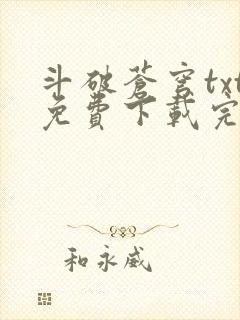 斗破苍穹txt
免费下载完
和永威